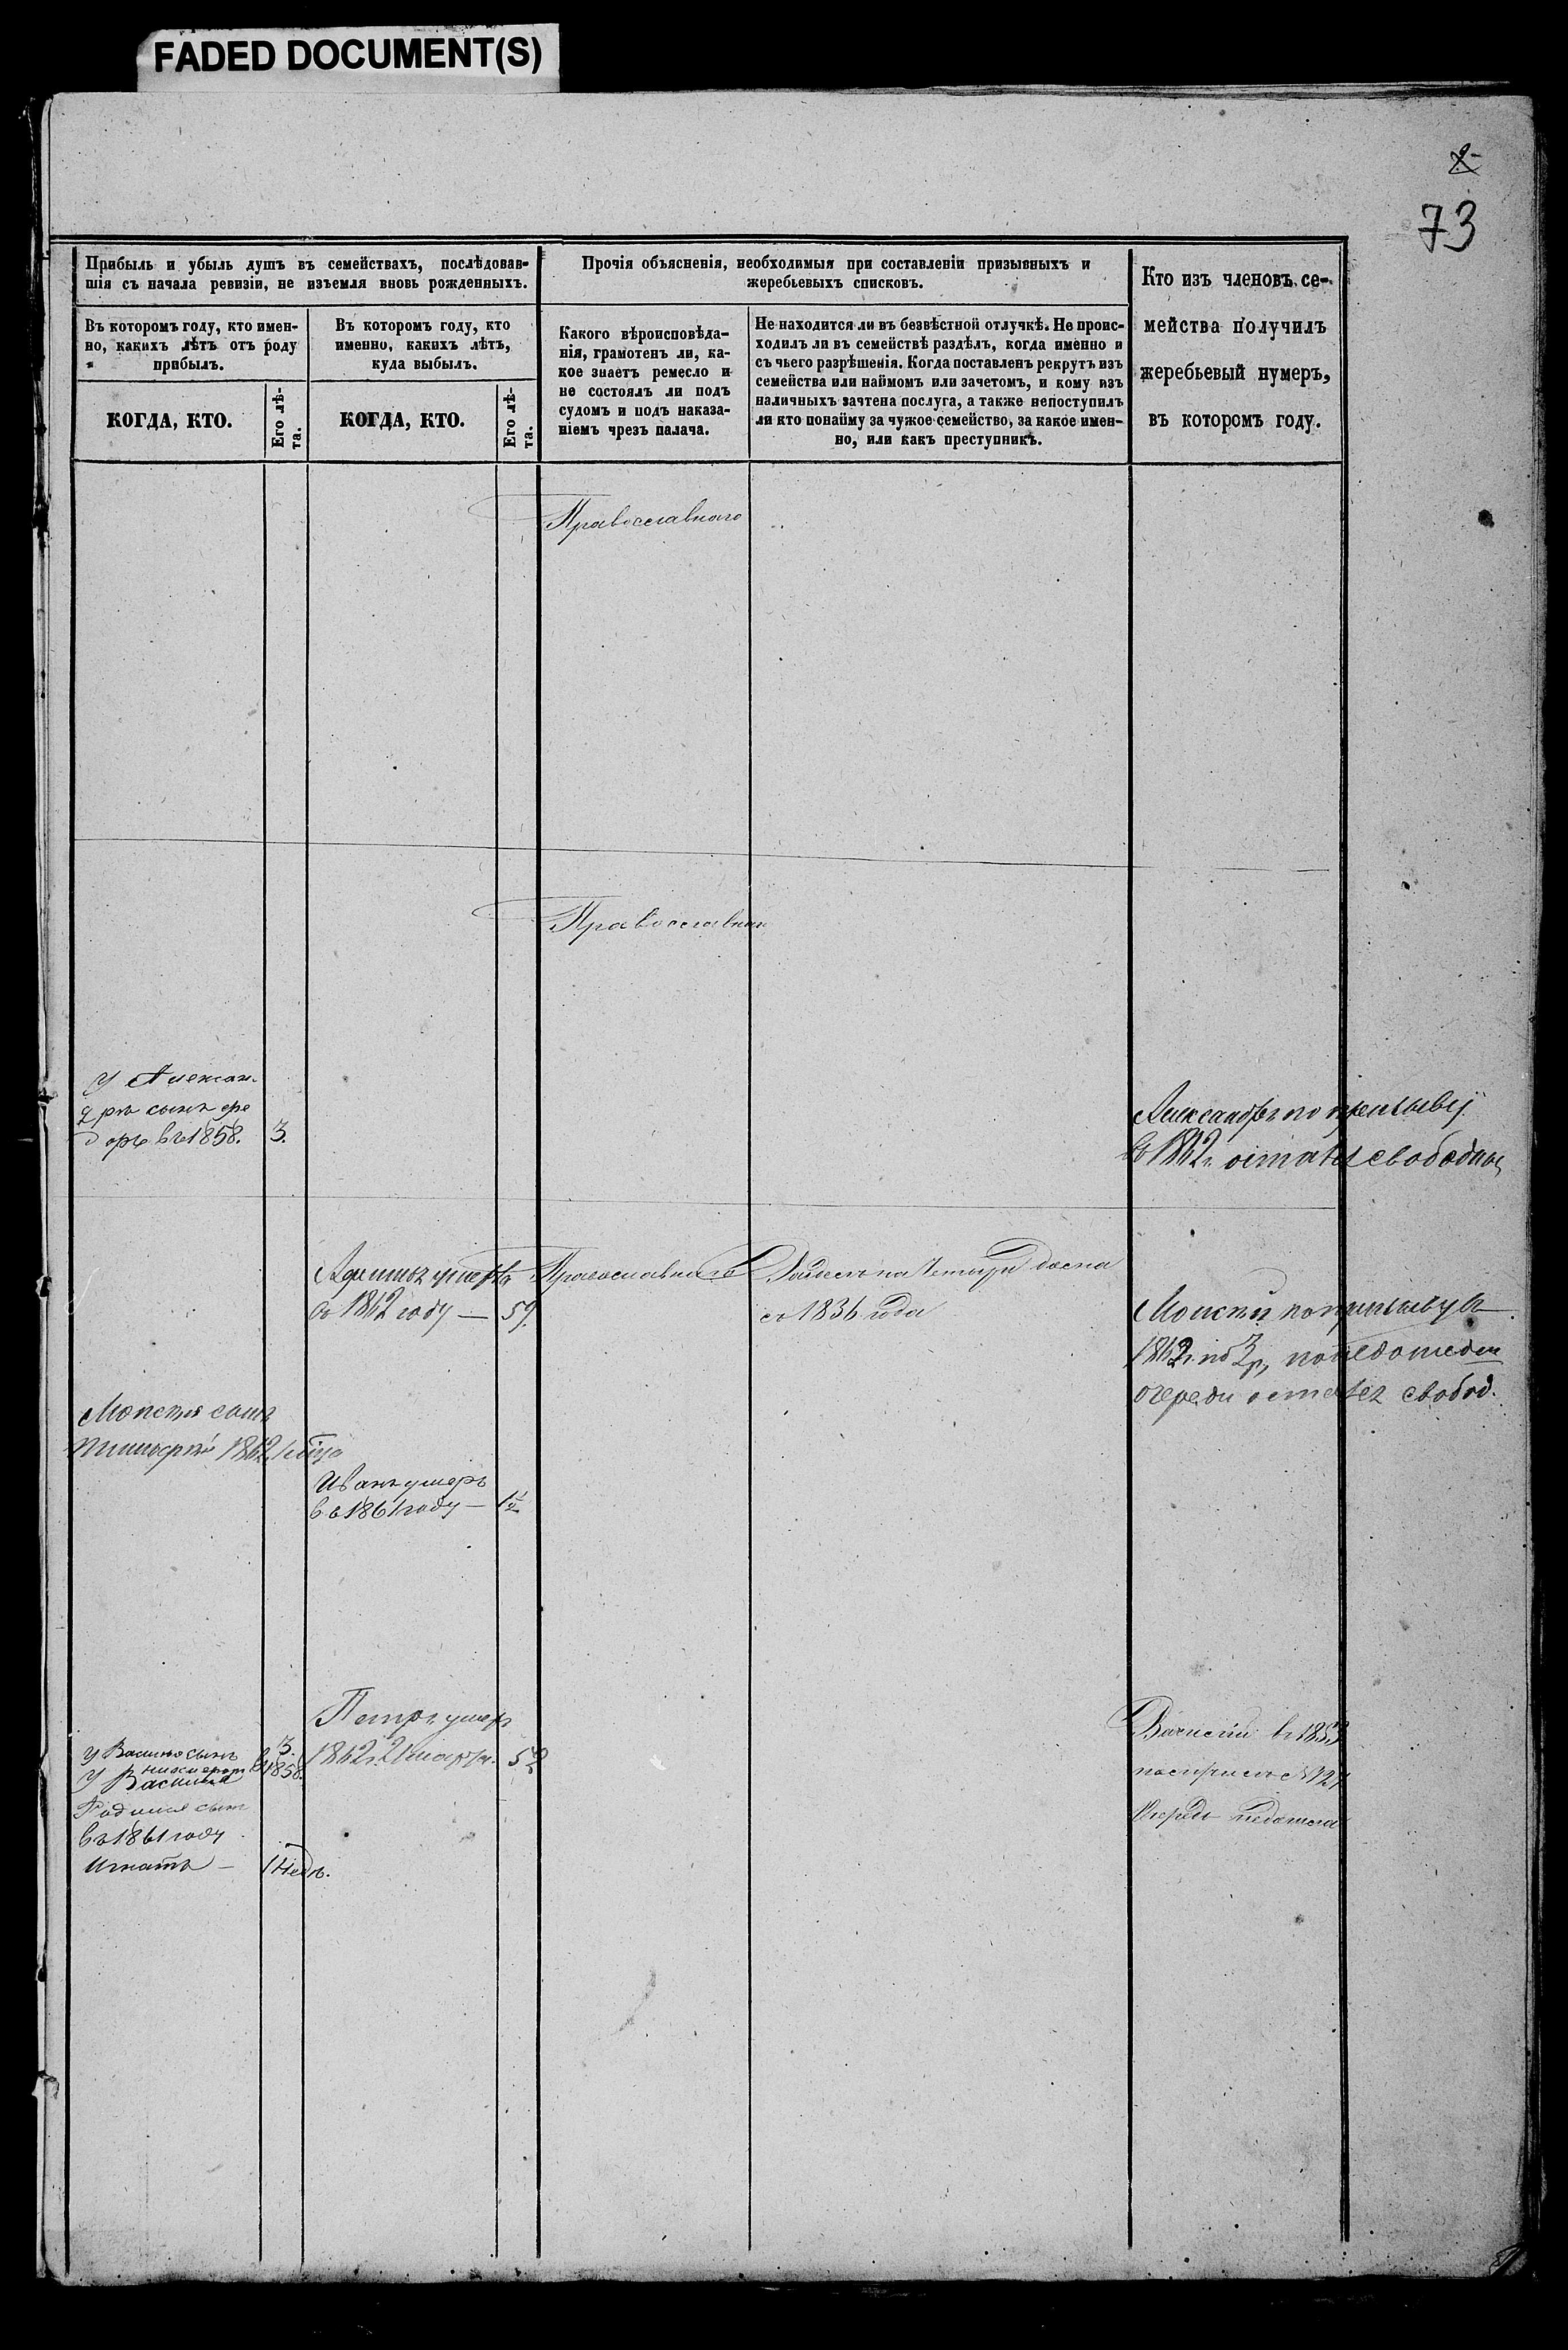 FADED DOCUMENT(S)
73
Прибыль и убыль душъ въ семействахъ, послѣдовав-
шія съ начала ревизіи, не изъемля вновь рожденныхъ.
Въ которомъ году, кто имен-
но, какихъ лѣтъ отъ роду
прибылъ.
КОГДА, КТО.
Его лѣ-
та.
Въ которомъ году, кто
именно, какихъ лѣтъ,
куда выбылъ.
КОГДА, КТО.
Его лѣ-
та.
Прочія объясненія, необходимыя при составленіи призывныхъ и
жеребьевыхъ списковъ.
Какого вѣроисповѣда-
нія, грамотенъ ли, ка-
кое знаетъ ремесло и
не состоялъ ли подъ
судомъ и подъ наказа-
ніемъ чрезъ палача.
Не находится ли въ безвѣстной отлучкѣ. Не проис-
ходилъ ли въ семействѣ раздѣлъ, когда именно и
съ чьего разрѣшенія. Когда поставленъ рекрутъ изъ
семейства или наймомъ или зачетомъ, и кому изъ
наличныхъ зачтена послуга, а также непоступилъ
ли кто понайму за чужое семейство, за какое имен-
но, или какъ преступникъ.
Кто изъ членовъ се-
мейства получилъ
жеребьевый нумеръ,
въ которомъ году.
Православнаго
Православнаго
У Алексан-
дра сынъ Фе
доръ въ 1858. 3.
Александръ по призыву
въ 1862 г. остался свободнымъ
умеръ
въ 1862 году — 59.
Православнаго
на четыре
съ 1836 года
Моисей по призыву въ
очереди остался свобод.
Моисея сынъ
1862
Иванъ умеръ
въ 1861 году — 1½
Петръ умеръ
1862 г. 21 марта.
У Василья сынъ
3.
въ 1858.
У Василья
Родился сынъ
въ 1861 году
Игнатъ — 1 Недѣ.
въ 1853
№ 127
Очередь недошла